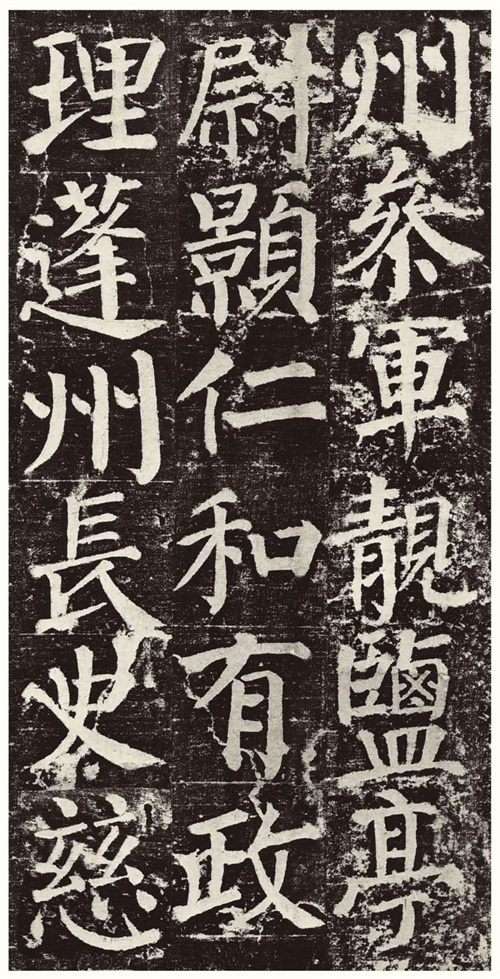 州參軍靚鹽亭
尉顥仁和有政
理蓬州長史慈